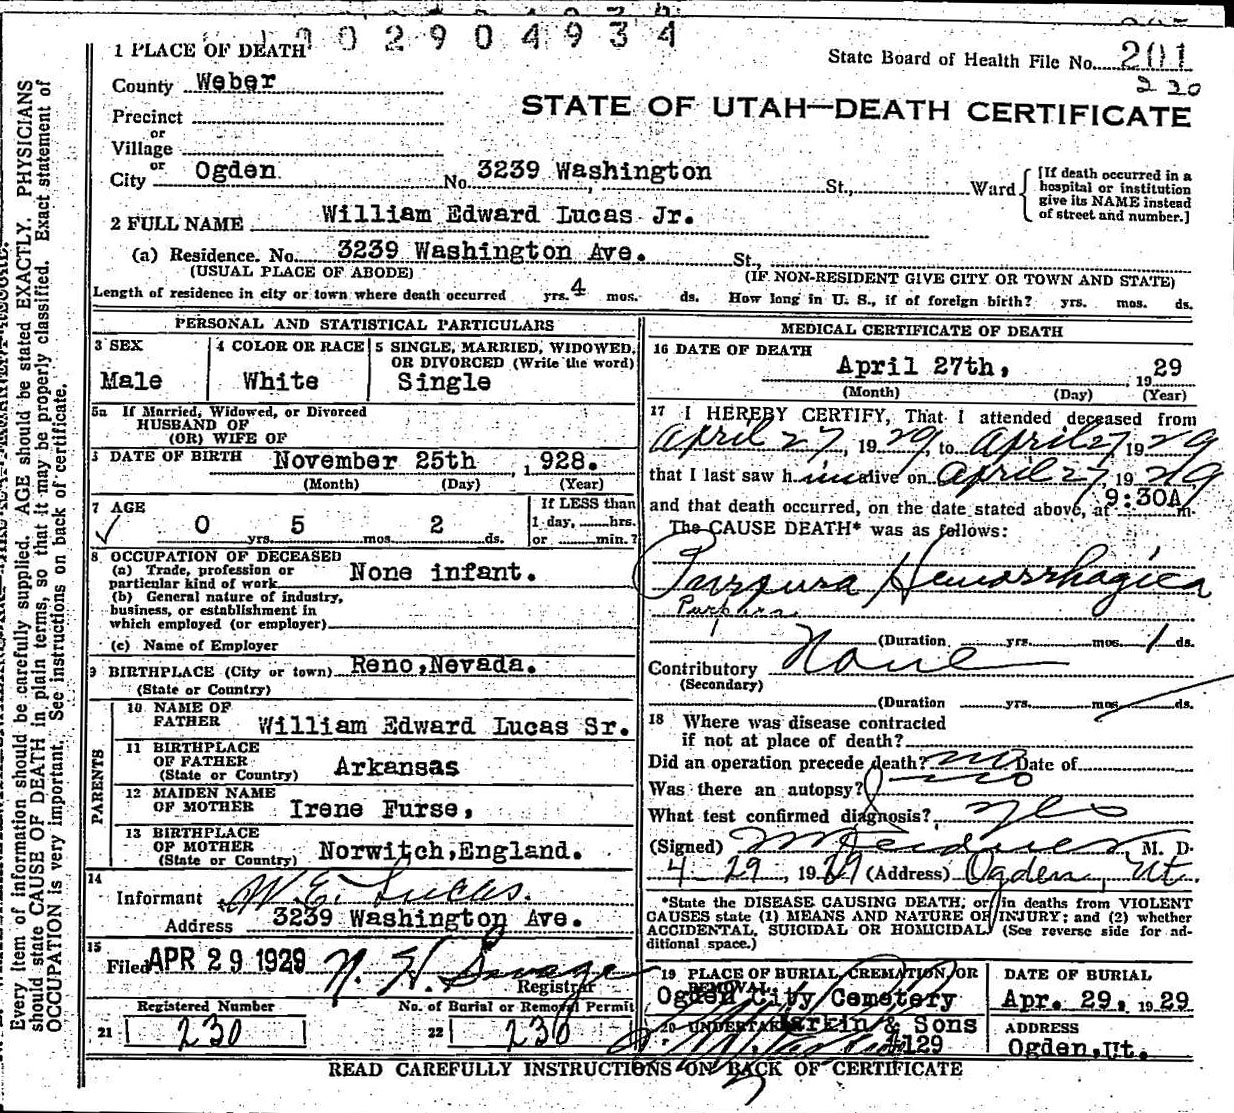 002904934
1 PLACE OF DEATH
State Board of Health File No. 201
County Weber
2 20
STATE OF UTAH—DEATH CERTIFICATE
Precinct
or
Village
or
City Ogden No. 3239 Washington St., Ward
[If death occurred in a
hospital or institution
give its NAME instead
of street and number.]
2 FULL NAME William Edward Lucas Jr.
(a) Residence. No. 3239 Washington Ave. St.,
(USUAL PLACE OF ABODE) (IF NON-RESIDENT GIVE CITY OR TOWN AND STATE)
Length of residence in city or town where death occurred yrs. 4 mos. ds. How long in U. S., if of foreign birth? yrs. mos. ds.
PERSONAL AND STATISTICAL PARTICULARS
3 SEX 4 COLOR OR RACE 5 SINGLE, MARRIED, WIDOWED,
OR DIVORCED (Write the word)
Male White Single
5a If Married, Widowed, or Divorced
HUSBAND OF
(OR) WIFE OF
DATE OF BIRTH November 25th, 1928.
(Month) (Day) (Year)
7 AGE If LESS than
0 yrs. 5 mos. 2 ds. 1 day, hrs.
or min.?
8 OCCUPATION OF DECEASED
(a) Trade, profession or
particular kind of work None infant.
(b) General nature of industry,
business, or establishment in
which employed (or employer)
(c) Name of Employer
9 BIRTHPLACE (City or town) Reno,Nevada.
(State or Country)
PARENTS
10 NAME OF
FATHER William Edward Lucas Sr.
11 BIRTHPLACE
OF FATHER Arkansas
(State or Country)
12 MAIDEN NAME
OF MOTHER Irene Furse,
13 BIRTHPLACE
OF MOTHER Norwitch,England.
(State or Country)
14
Informant W. E. Lucas.
Address 3239 Washington Ave.
15
Filed APR 29 1929 N. H. Savage
Registrar
Registered Number No. of Burial or Removal Permit
21 230 22 230
MEDICAL CERTIFICATE OF DEATH
16 DATE OF DEATH
April 27th, 19 29
(Month) (Day) (Year)
17 I HEREBY CERTIFY, That I attended deceased from
April 27, 1929, to April 27, 1929
that I last saw him alive on April 27, 1929
and that death occurred, on the date stated above, at 9:30A m.
The CAUSE DEATH* was as follows:
Purpura Hemorrhagica
Purpura
(Duration yrs. mos. 1 ds.
Contributory None
(Secondary)
(Duration yrs. mos. ds.
18 Where was disease contracted
if not at place of death?
Did an operation precede death? no Date of
Was there an autopsy? no
What test confirmed diagnosis? yes
(Signed) M. D.
4-29, 1929 (Address) Ogden, Ut.
*State the DISEASE CAUSING DEATH, or in deaths from VIOLENT
CAUSES state (1) MEANS AND NATURE OF INJURY; and (2) whether
ACCIDENTAL, SUICIDAL OR HOMICIDAL. (See reverse side for ad-
ditional space.)
19 PLACE OF BURIAL, CREMATION, OR
REMOVAL
Ogden City Cemetery
DATE OF BURIAL
Apr. 29. 1929
20 UNDERTAKER Larkin & Sons
#129
ADDRESS
Ogden,Ut.
READ CAREFULLY INSTRUCTIONS ON BACK OF CERTIFICATE
Every item of information should be carefully supplied. AGE should be stated EXACTLY. PHYSICIANS
should state CAUSE OF DEATH in plain terms, so that it may be properly classified. Exact statement of
OCCUPATION is very important. See instructions on back of certificate.